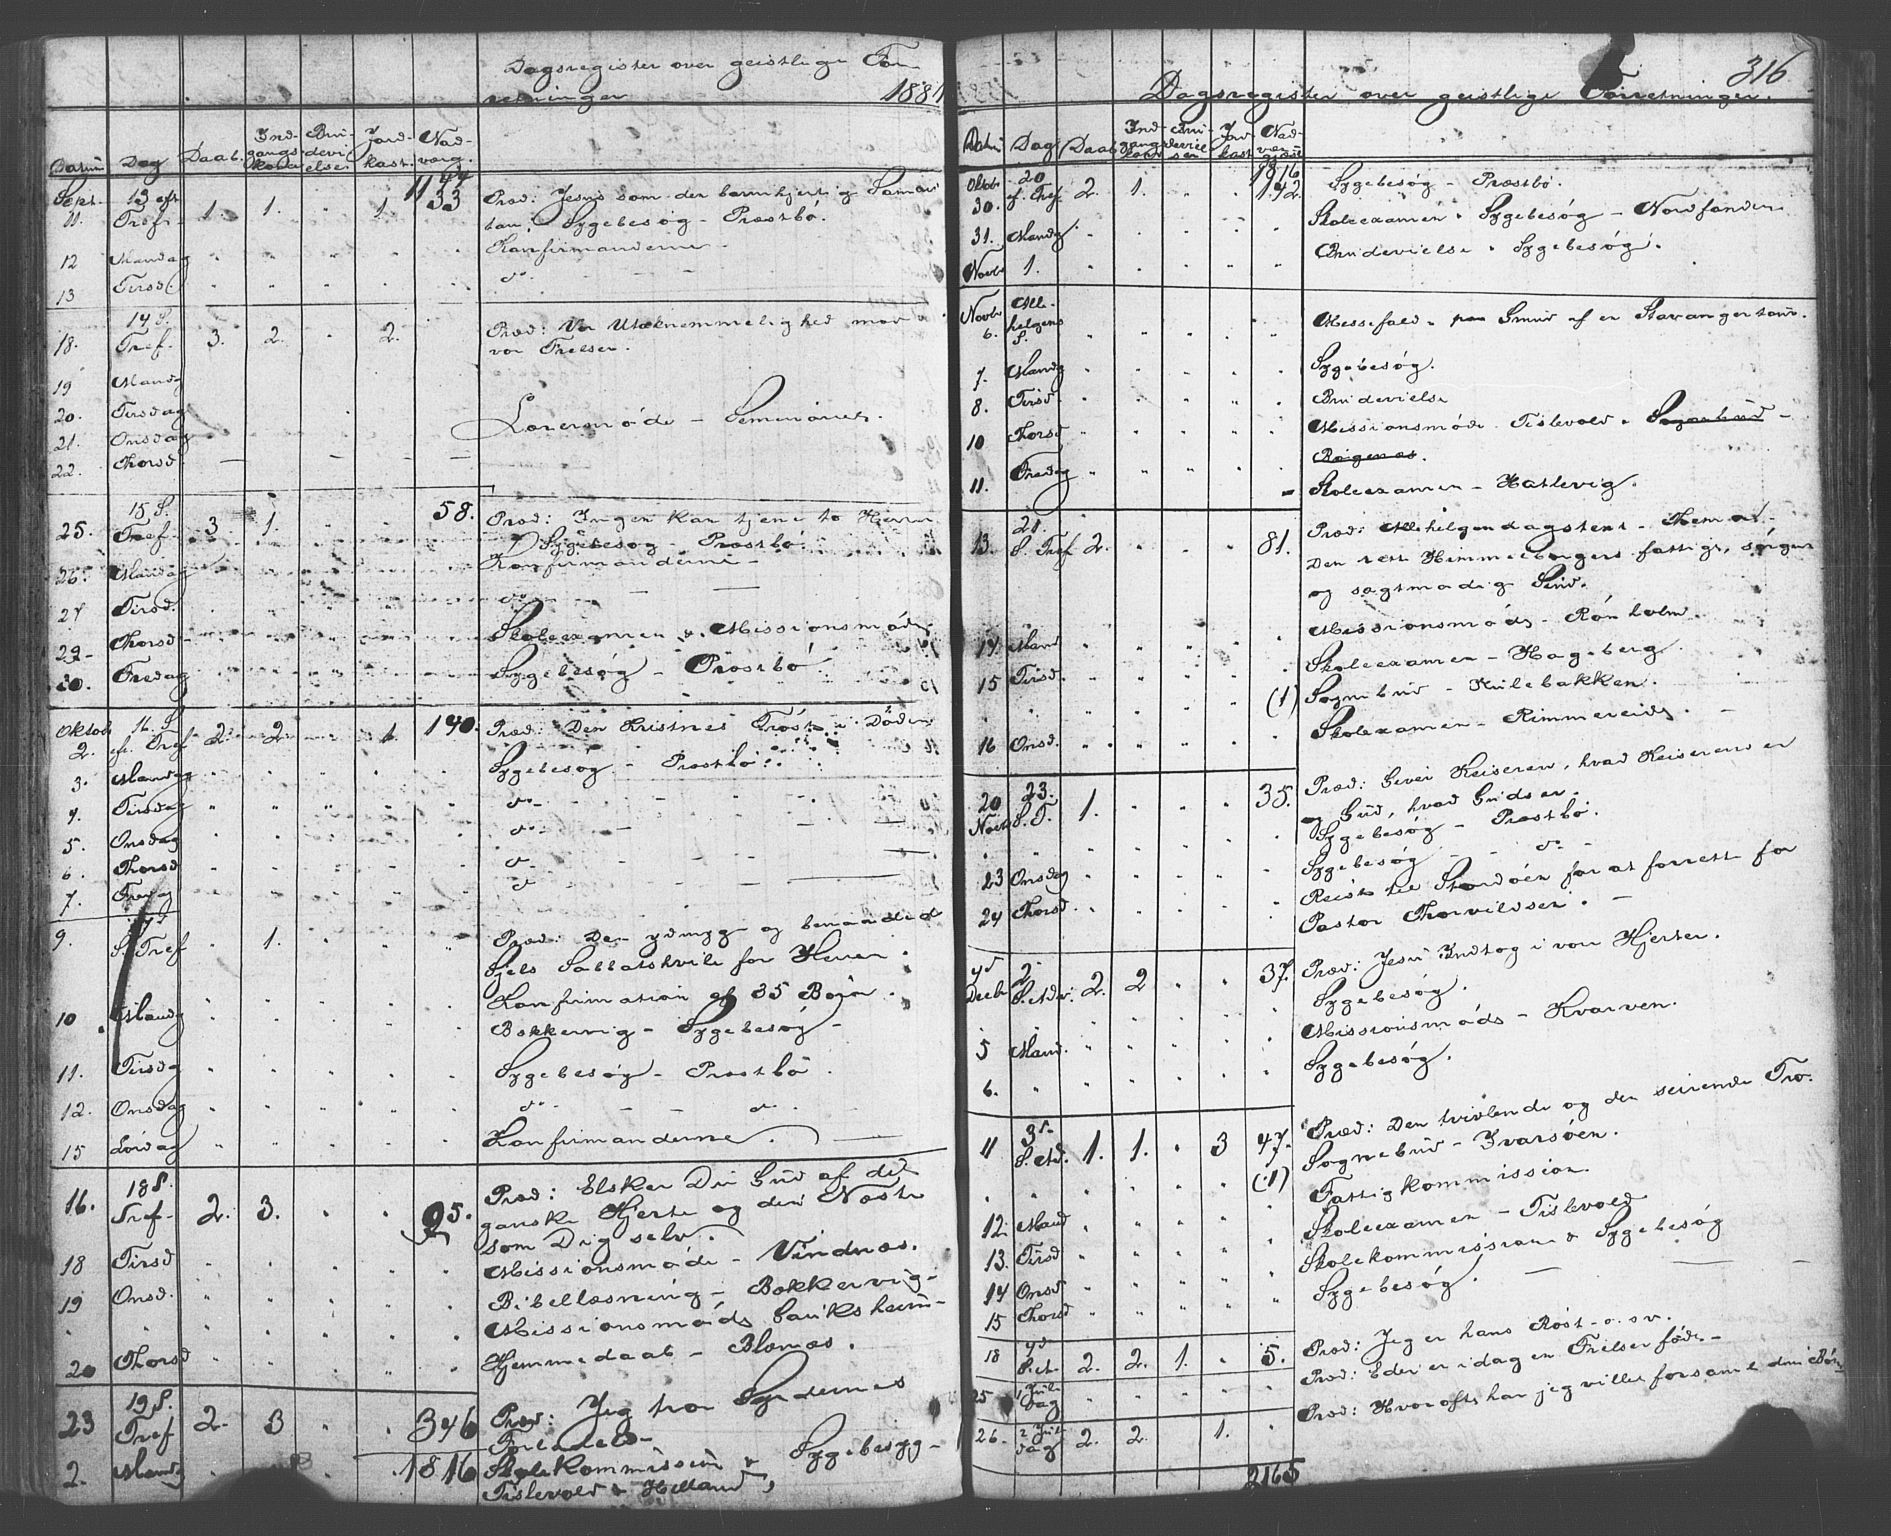 Dagsregister over geistlige For-
retninger 1881
Datum Dag Daab. Ind-gangs-koner Bru-devi-elser Jord-kast. Nad-verg.
Sept. 11. 13 eft Tref. 1. 1. " 1 1133 Præd: Jesus som den barmhjertige Samari-
tan. Sygebesøg - Præstbø.
12 Mandag Konfirmanderne -
13 Tirsd. do - -
18. 14 S. Tref. 3. 2. " 2. Præd: Vor Utaknemmelighed mod
vor Frelser.
19 Mand
20. Tirsdag Lærermøde - Seminariet.
21. Onsdag
22. Thorsd.
25. 15 S. Tref. 3 1. 58. Præd: Ingen kan tjene to Herrer
Sygebesøg - Præstbø.
26. Mandag Konfirmanderne -
27 Tirsd. do - -
29 Thorsd. Skoleexamen & Missionsmøde
30. Fredag Sygebesøg - Præstbø
Oktob 2. 16. S. ef. Tref 2. 2. 1. 140. Præd: Den Kristnes Trøst i Døden
3. Mandag Sygebesøg - Præstbø.
4. Tirsdag do - -
5. Onsdag do - -
6 Thorsd do - -
7. Fredag do - -
9. S. Tref 1. Præd: Den ydmyge og benaadede
Sjels Sabbatshvile for Herren.
Konfirmation af 35 Børn.
10 Mandg Bekkervig - Sygebesøg -
11. Tirsdag Sygebesøg - Præstbø.
12. Onsdag do - - do
15 Lørdag Konfirmanderne.
16. 18 S. Tref- 2. 3. 95. Præd: Elsker Din Gud af dit
ganske Hjerte og din Næste
som Dig selv.
18 Tirsd Missionsmøde - Vindnæs.
19 Onsd. Bibellæsning - Bekkervig-
Missionsmøde
20 Thorsd Hjemmedaab - Blænæs.
23 19 S. Tref 2. 3 346 Præd: Jeg tror Syndernes
Forladelse -
2. Mandg 1816 Skolekommission & Sygebesøg -
Tislevold & Helland
316
Dagsregister over geistlige Forretninger.
Datum Dag Daab Ind-gangs-koner Brudeviel-ser Jord-kast Nad-ver
1816
Oktob 30. 20 S. Tref. 2. 1. " " 142. Sygebesøg - Præstbø.
31. Mandg. Skoleexamen & Sygebesøg - Nordfonden
Novb 1. Brudevielse & Sygebesøg.
Novb 6. Alle-helgens S. Messefald & Smud af en Stavangertour.
7. Mandg Sygebesøg.
8. Tirsd Brudevielse
10 Thorsd Missionsmøde Tislevold & Sognebud -
Røgenæs.
11. Fredag Skoleexamen - Hatlevig.
13. 21. S. Tref 2. 81. Præd: Allehelgendagstext - Thema:
Den rette Himmelborgers fattige, sørgen
og sagtmodig Sind.
14 Mand Missionsmøde - Rønholm
15 Tirsd. Skoleexamen - Hageberg.
(1) Sognebud - Kulebakken.
16 Onsd. Skoleexamen - Rimmereide -
20 Novb 23. S. T. 1. 35. Præd: Giver Keiseren, hvad Keiserens er
og Gud, hvad Guds er.
Sygebesøg - Præstbø.
23 Onsdag Sygebesøg - - do -
24 Thorsd. Reist til Stordøen for at forrette for
Pastor Thorvildsen. -
4de Decb 2. S. Adv. 2. 2 37. Præd: Jesu Indtog i vore Hjerter.
Sygebesøg.
5 Mand. Missionsmøde - Kvarven.
6. Sygebesøg.
11 3. S. Ad. 1. 1. 3 47. Præd: Den tvivlende og den seirende Tro.
(1) Sognebud - Ivarsøen.
12. Mand Fattigkommission.
13. Tirsd Skoleexamen - Tislevold
14 Onsd Skolekommission & Sygebesøg
15 Thorsd Sygebesøg. - - -
18 4de S. A. 2. 2. 1. 5. Præd: Jeg er hans Røst - o. s. v.
25 1 Jule dag Præd: Eder er idag en Frelser født -
26. 2 Jule dag 2. 2. 1. Præd: Hvor ofte har jeg villet forsamle dine Børn
2165